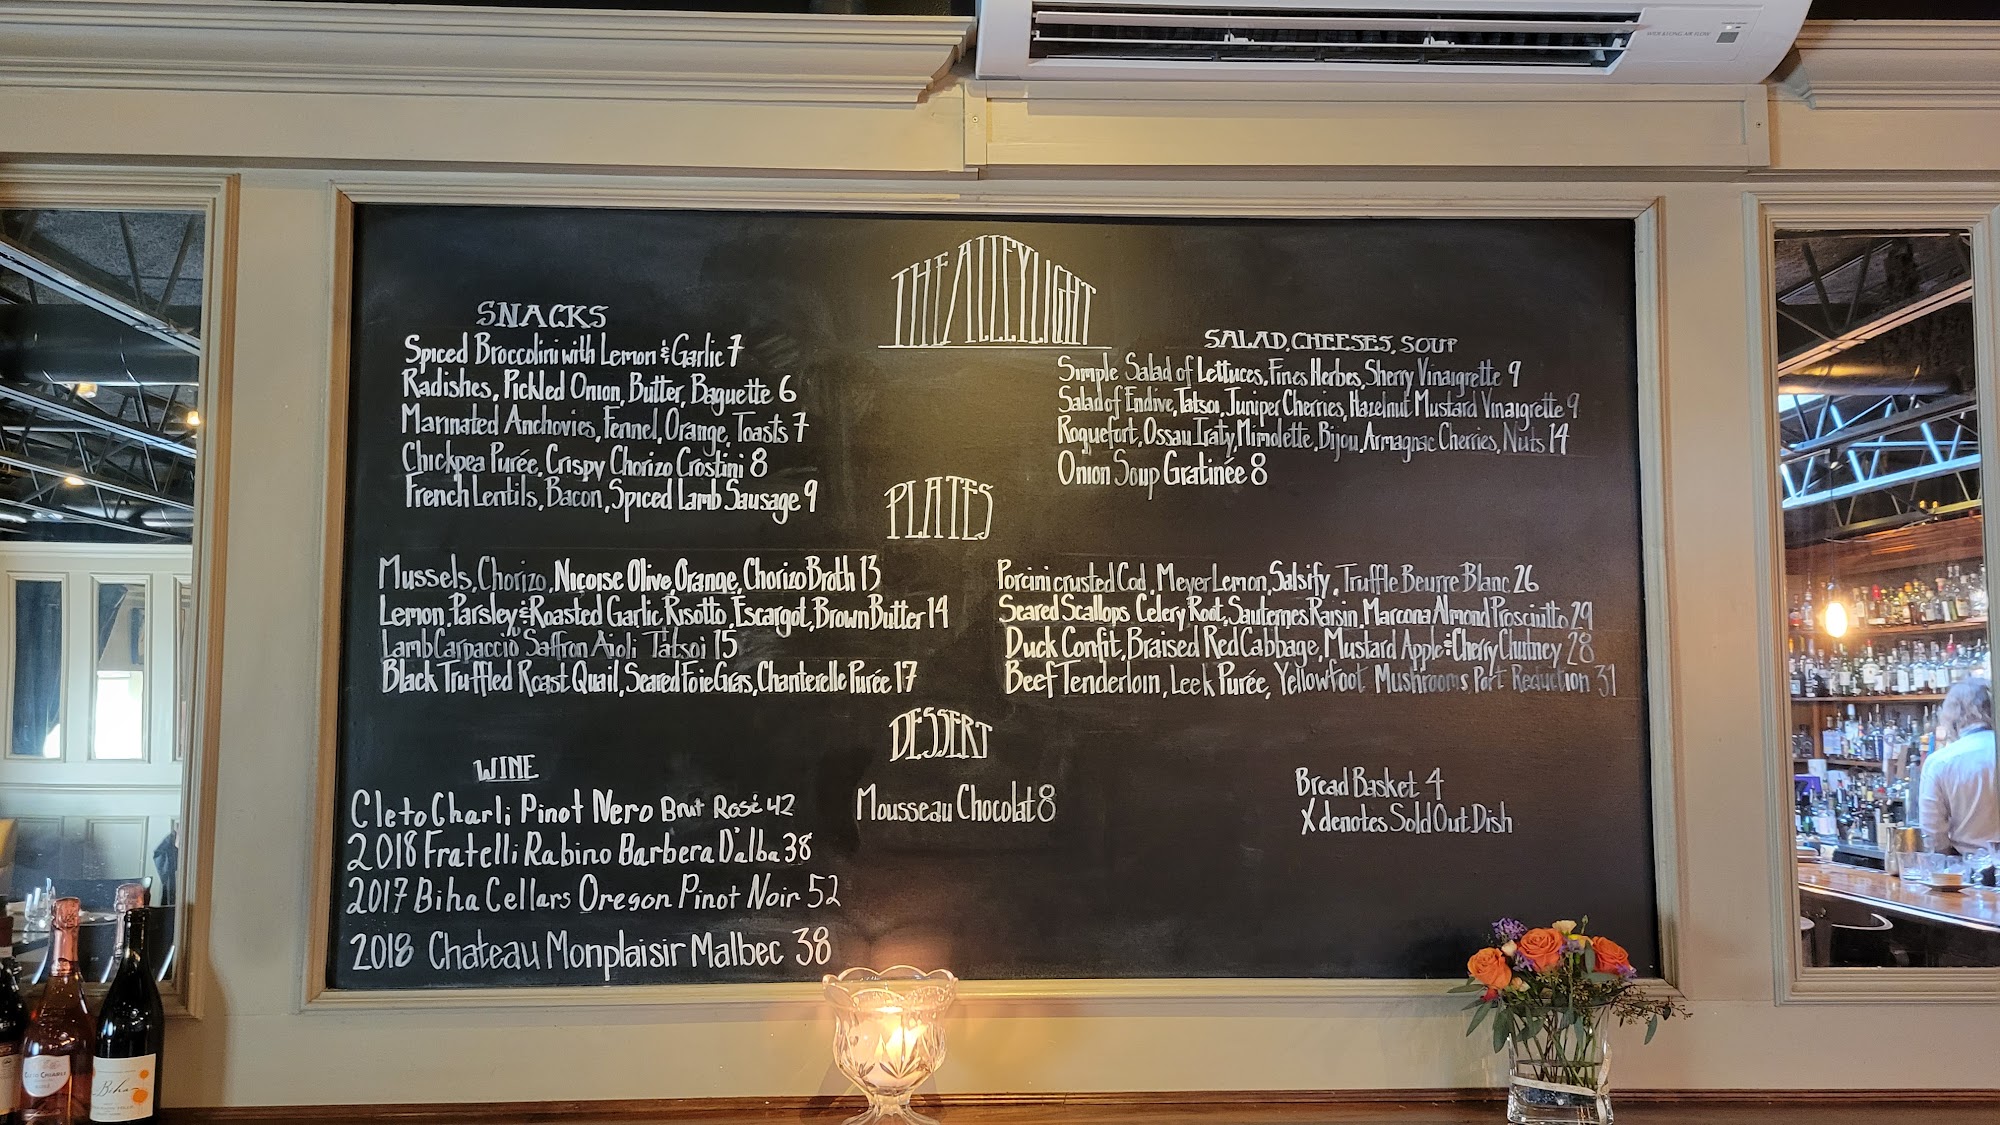 THE ALLEY LIGHT
SNACKS
Spiced Broccolini with Lemon & Garlic 7
Radishes, Pickled Onion, Butter, Baguette 6
Marinated Anchovies, Fennel, Orange, Toasts 7
Chickpea Purée, Crispy Chorizo Crostini 8
French Lentils, Bacon, Spiced Lamb Sausage 9
SALAD, CHEESES, SOUP
Simple Salad of Lettuces, Fines Herbes, Sherry Vinaigrette 9
Salad of Endive, Tatsoi, Juniper Cherries, Hazelnut Mustard Vinaigrette 9
Roquefort, Ossau Iraty, Mimolette, Bijou, Armagnac Cherries, Nuts 14
Onion Soup Gratinée 8
PLATES
Mussels, Chorizo, Niçoise Olive, Orange, Chorizo Broth 13
Lemon, Parsley & Roasted Garlic Risotto, Escargot, Brown Butter 14
Lamb Carpaccio Saffron Aioli Tatsoi 15
Black Truffled Roast Quail, Seared Foie Gras, Chanterelle Purée 17
Porcini crusted Cod, Meyer Lemon, Salsify, Truffle Beurre Blanc 26
Seared Scallops Celery Root, Sauternes Raisin, Marcona Almond Prosciutto 29
Duck Confit, Braised Red Cabbage, Mustard Apple & Cherry Chutney 28
Beef Tenderloin, Leek Purée, Yellowfoot Mushrooms Port Reduction 31
DESSERT
Mousse au Chocolat 8
WINE
Cleto Charli Pinot Nero Brut Rosé 42
2018 Fratelli Rabino Barbera D'alba 38
2017 Biha Cellars Oregon Pinot Noir 52
2018 Chateau Monplaisir Malbec 38
Bread Basket 4
X denotes Sold Out Dish
Cleto Chiarli
Biha